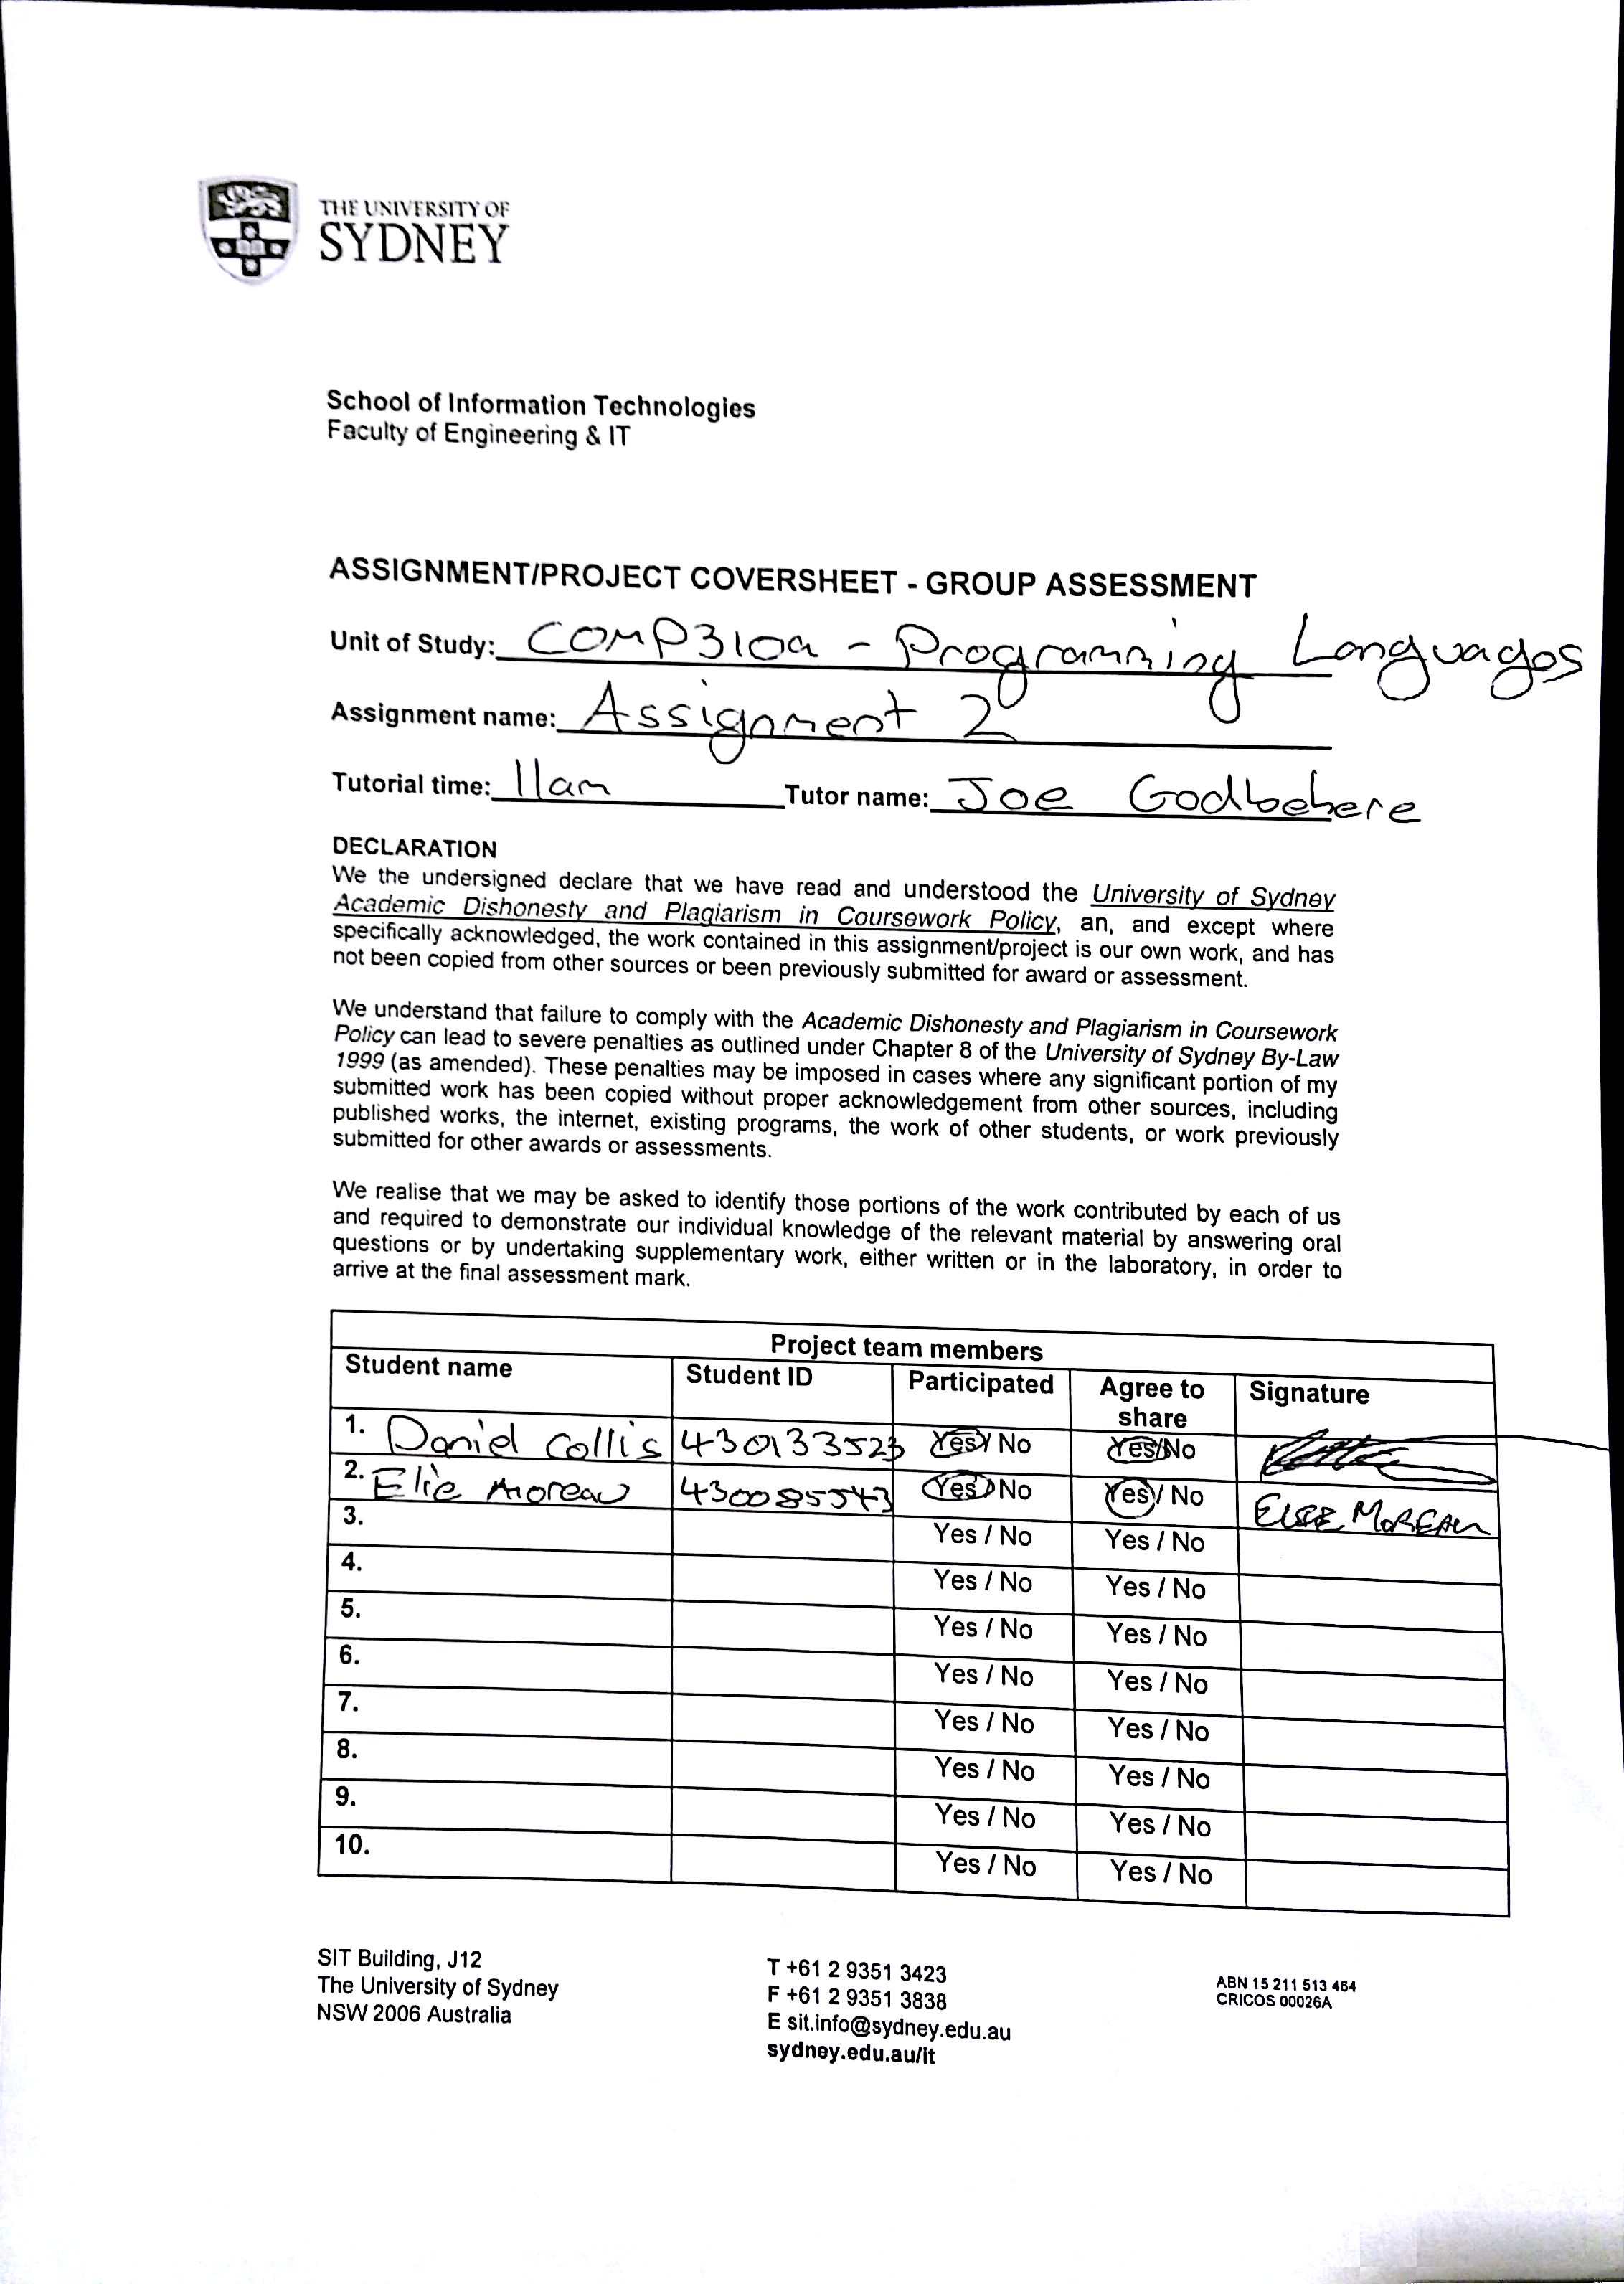 THE UNIVERSITY OF
SYDNEY
School of Information Technologies
Faculty of Engineering & IT
ASSIGNMENT/PROJECT COVERSHEET - GROUP ASSESSMENT
Unit of Study: COMP3109 - Programming Languages
Assignment name: Assignment 2
Tutorial time: 11am Tutor name: Joe
DECLARATION
We the undersigned declare that we have read and understood the University of Sydney
Academic Dishonesty and Plagiarism in Coursework Policy, an, and except where
specifically acknowledged, the work contained in this assignment/project is our own work, and has
not been copied from other sources or been previously submitted for award or assessment.
We understand that failure to comply with the Academic Dishonesty and Plagiarism in Coursework
Policy can lead to severe penalties as outlined under Chapter 8 of the University of Sydney By-Law
1999 (as amended). These penalties may be imposed in cases where any significant portion of my
submitted work has been copied without proper acknowledgement from other sources, including
published works, the internet, existing programs, the work of other students, or work previously
submitted for other awards or assessments.
We realise that we may be asked to identify those portions of the work contributed by each of us
and required to demonstrate our individual knowledge of the relevant material by answering oral
questions or by undertaking supplementary work, either written or in the laboratory, in order to
arrive at the final assessment mark.
Project team members
Student name Student ID Participated Agree to share Signature
1. Daniel Collis 430133523 Yes / No Yes / No
2. Elie Moreau 430085543 Yes / No Yes / No ELIE MOREAU
3. Yes / No Yes / No
4. Yes / No Yes / No
5. Yes / No Yes / No
6. Yes / No Yes / No
7. Yes / No Yes / No
8. Yes / No Yes / No
9. Yes / No Yes / No
10. Yes / No Yes / No
SIT Building, J12
The University of Sydney
NSW 2006 Australia
T +61 2 9351 3423
F +61 2 9351 3838
E sit.info@sydney.edu.au
sydney.edu.au/it
ABN 15 211 513 464
CRICOS 00026A